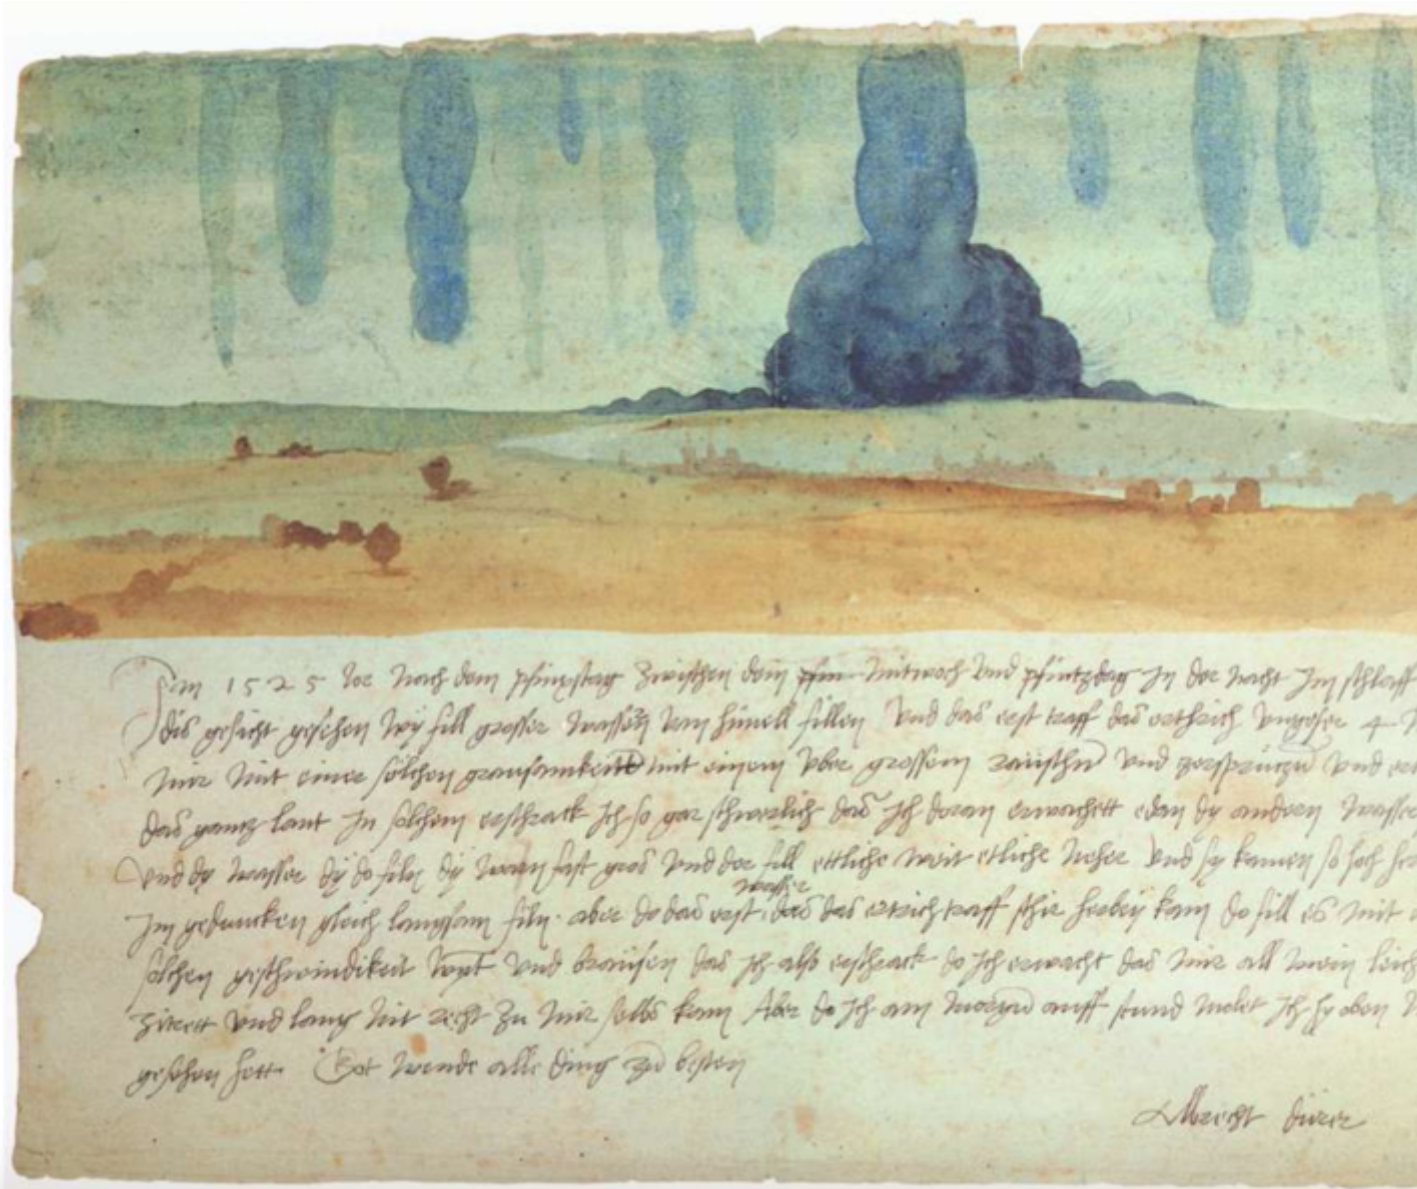 Im 1525 Jor nach dem pfinxstag zwischen dem pfin mitwoch und pfintzdag in der nacht im schlaff
dis gesicht gesehen wy fill grosser wassern vom himell fillen und das erst traff das erthrich ungefer 4
mir mit einer solchen grausamkeitt mit einem uber grossem rauschn und zersprützn und
das gantz lant In solchem erschrack ich so gar schwerlich das ich doran erwachett edan dy andern wasser
und dy wasser dy do filn dy warn fast gros und der fill ettliche weit etliche neher und sy kamen so hoch
im gedancken gleich langsam filn aber do das erst wasser das das ertrich traff schir herbey kam do fill es mit
solchen geschwindikeit wynt und braüsen das ich also erschrack do ich erwacht das mir all mein
zitrett und lang nit recht zu mir selbs kam Aber do ich am morgn auff stund molet ich hy oben
gesehen hett Got wende alle ding zu besten
Albrecht dürer